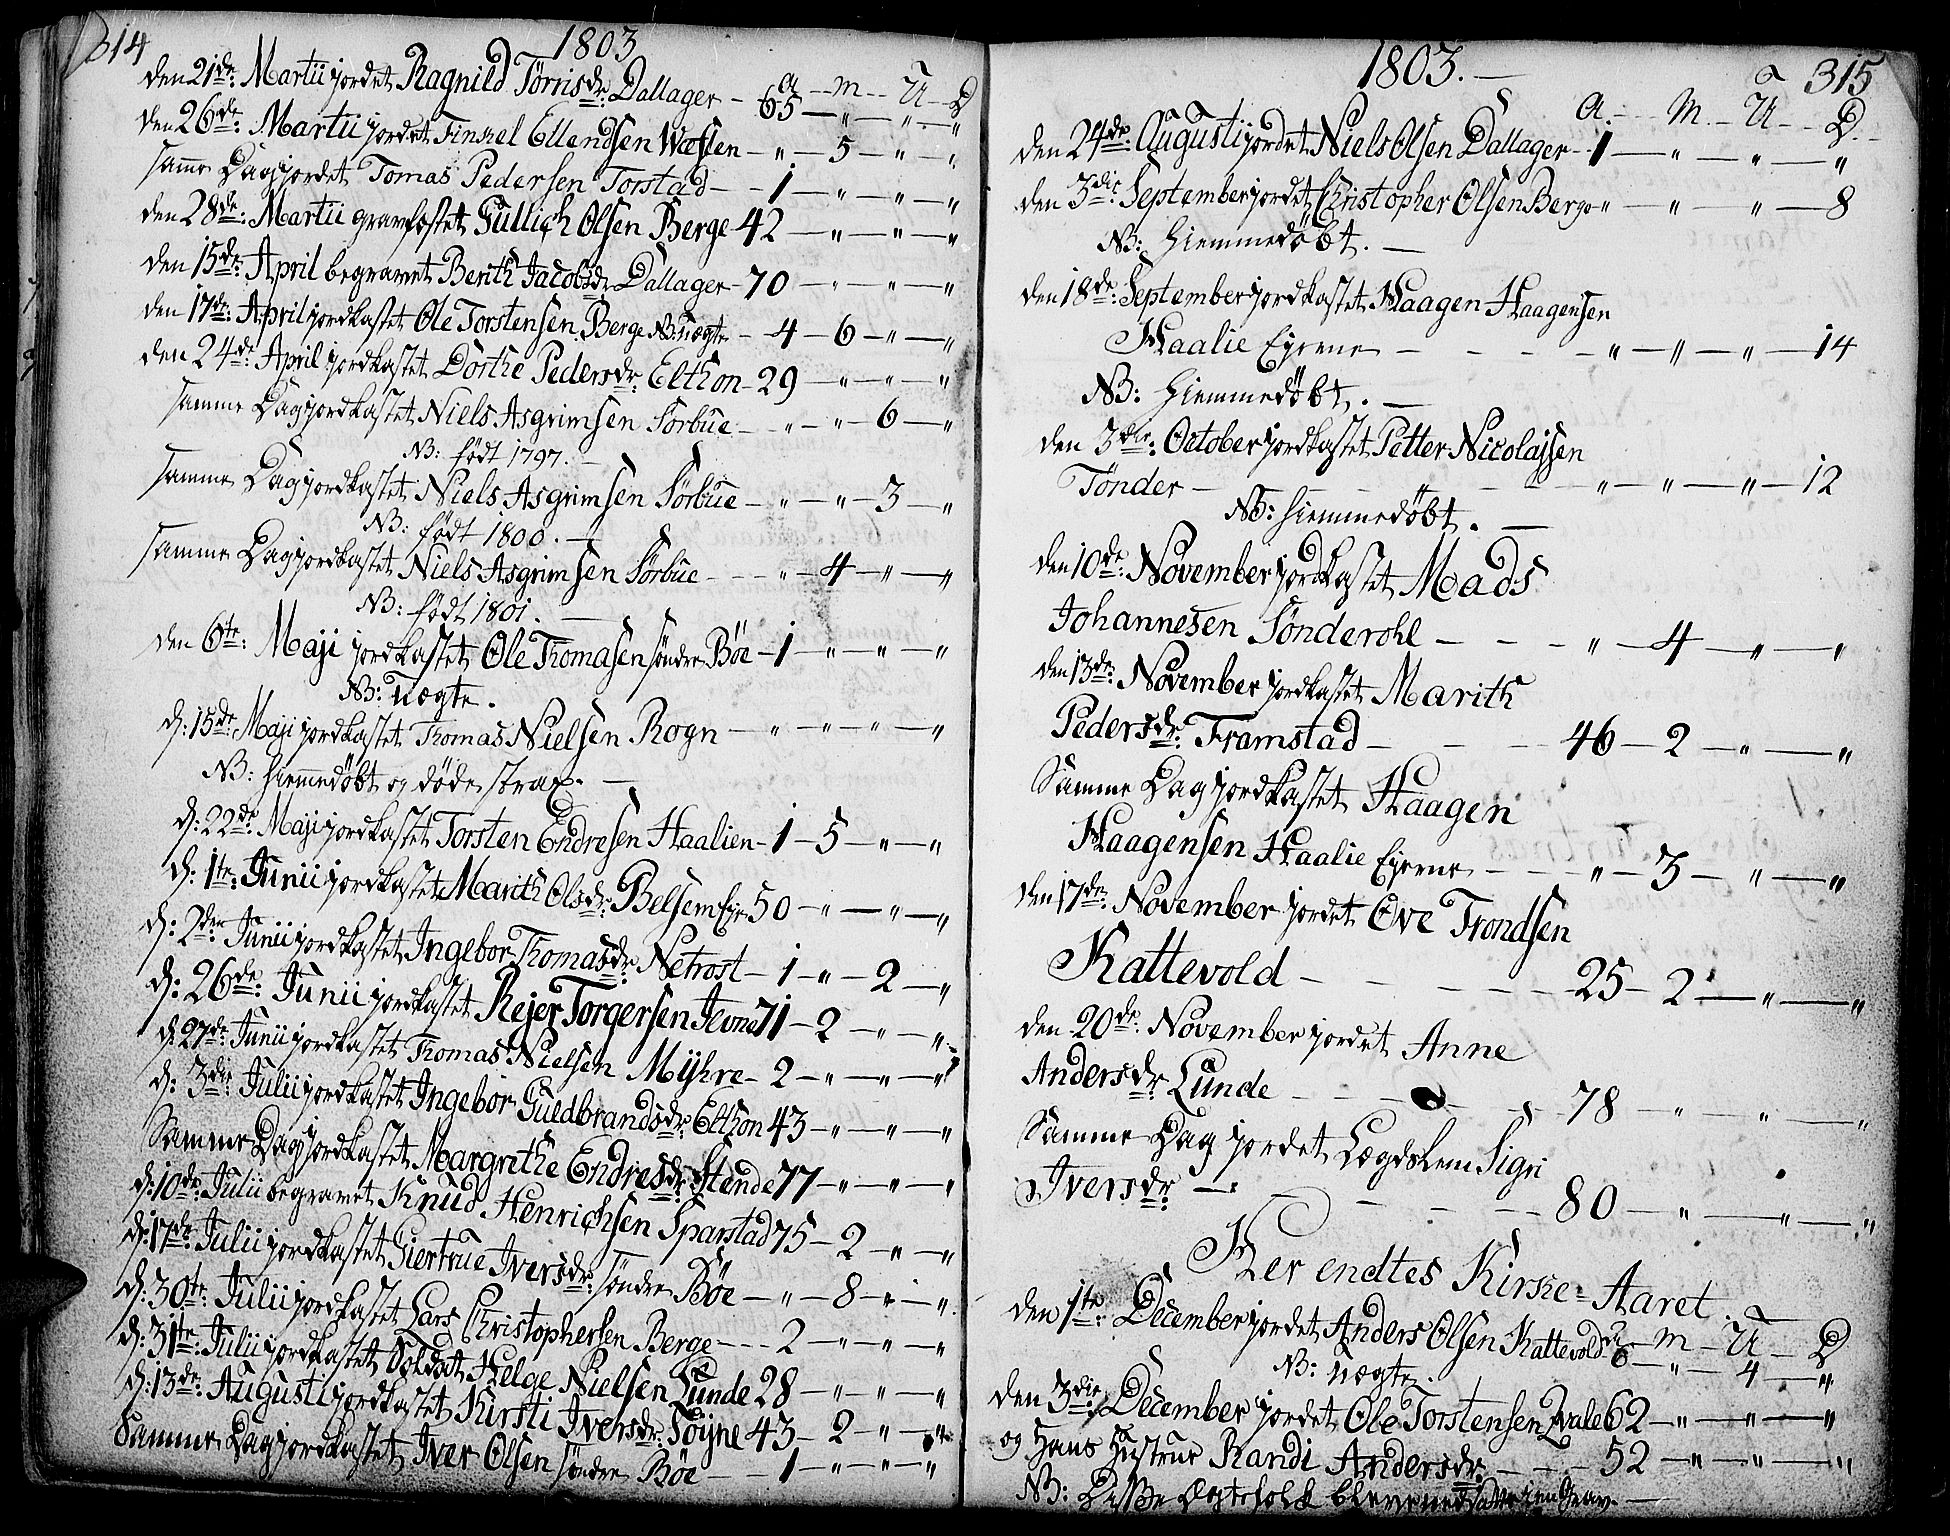 314
1803
A. — M. — U. — D.
den 21de: Martii jordet Ragnild Törrisdr: Dallager — 65 — " — " — "
den 26de: Martii jordet Finkel Ellendsen Wæslen — " — 5 — " — "
samme Dag jordet Tomas Pedersen Torstad — 1 — " — " — "
den 28de: Martii gravfæstet Gullich Olsen Berge 42 — " — " — "
den 15de: April begravet Berith Jacobsdr Dallager — 70 — " — " — "
den 17de: April jordkastet Ole Torstensen Berge NB: uægte — 4 — 6 — " — "
den 24de: April jordkastet Dorthe Pedersdr: Elthon — 29 — " — " — "
samme Dag jordkastet Niels Asgrimsen Sörbue — " — " — 6 — "
NB: födt 1797. —
samme Dag jordkastet Niels Asgrimsen Sörbue — " — " — 3 — "
NB: födt 1800. —
samme Dag jordkastet Niels Asgrimsen Sörbue — " — 4 — " — "
NB: födt 1801. —
den 6te: Maji jordkastet Ole Thomasen söndre Böe — 1 — " — " — "
NB: uægte.
d: 15de: Maji jordkastet Thomas Nielsen Rogn — " — " — " — "
NB: hiemmedöbt og döde strax. —
d: 22de: Maji jordkastet Torsten Endresen Haalien — 1 — 5 — " — "
d: 1te: Junii jordkastet Marith Olsdr: Belsem Eje 50 — " — " — "
d: 2den Junii jordkastet Ingebor Thomasdr: Netrost — 1 — " — 2 — "
d: 26de: Junii jordkastet Rejer Torgersen Jevne 71 — 2 — " — "
d: 27de: Junii jordkastet Thomas Nielsen Mÿhre — 2 — " — " — "
d: 3die: Julii jordkastet Ingebor Guldbrandsdr: Elthon 43 — " — " — "
Samme Dag jordkastet Margrithe Endresdr: Stende 77 — " — " — "
d: 10de: Julii begravet Knud Henrichsen Sparstad 75 — 2 — " — "
d: 17de: Julii jordkastet Giertrue Iversdr: söndre Böe — " — 8 — " — "
d: 30te: Julii jordkastet Lars Christophersen Berge — 2 — " — " — "
d: 31te: Julii jordkastet Soldat Helge Nielsen Lunde 28 — " — " — "
d: 13de: Augusti jordkastet Kirsti Iversdr: Töyne 43 — 2 — " — "
Samme Dag jordkastet Iver Olsen söndre Böe — 1 — " — " — "
1803. —
315
A. — M. — U — D.
den 24de: Augusti jordet Niels Olsen Dallager — 1 — " — " — "
den 3die September jordet Christopher Olsen Berge " — " — " — 8
NB: hiemmedöbt. —
den 18de: September jordkastet Haagen Haagensen
Haalie Ejerne — " — " — " — 14
NB: hiemmedöbt. —
den 3die: October jordkastet Petter Nicolajsen
Tönder — " — " — " — 12
NB: hiemmedöbt. —
den 10de: November jordkastet Mads
Johannesen Sönderohl — " — 4 — " — "
den 13de: November jordkastet Marith
Pedersdr: Framstad — 46 — 2 — " — "
Samme Dag jordkastet Haagen
Haagensen Haalie Ejerne — " — 3 — " — "
den 17de: November jordet Ove Trondsen
Kattevold — 25 — 2 — " — "
den 20de: November jordet Anne
Andersdr: Lunde — 78 — " — " — "
Samme Dag jordet Lægdslem Sigri
Iversdr: — 80 — " — " — "
Her endtes Kirke-Aaret.
A — M — U — D
den 1te: December jordet Anders Olsen Kattevold 6 — " — 4 — "
NB: uægte.
den 3die: December jordet Ole Torstensen Qvale 62 — " — " — "
og Hans Hustrue Randi Andersdr: — 52 — " — " — "
NB: Disse Ægtefolk bleve nedsatte i en Grav. —